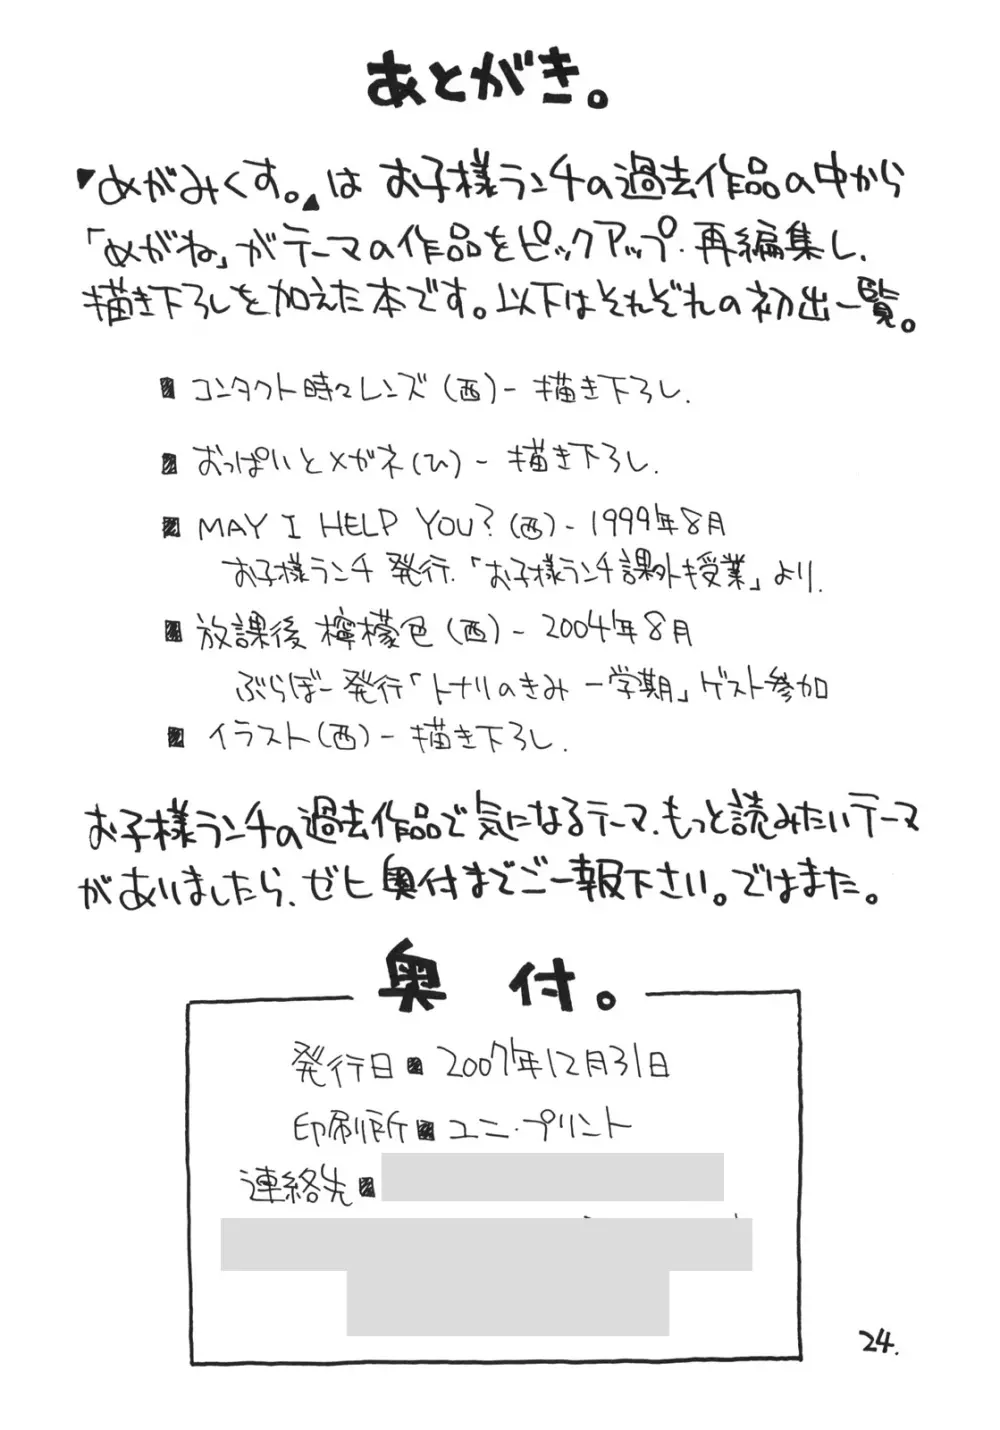 あとがき。
『めがみくす。』は お子様ランチの過去作品の中から
「めがね」がテーマの作品をピックアップ・再編集し、
描き下ろしを加えた本です。以下はそれぞれの初出一覧。
■ コンタクト時々レンズ(西)- 描き下ろし.
■ おっぱいとメガネ(ひ)- 描き下ろし.
■ MAY I HELP YOU?(西)- 1999年8月
お子様ランチ 発行.「お子様ランチ課外授業」より.
■ 放課後 檸檬色(西)- 2004年8月
ぶらぼー発行「トナリのきみ 一学期」ゲスト参加
■ イラスト(西)- 描き下ろし.
お子様ランチの過去作品で気になるテーマ、もっと読みたいテーマ
がありましたら、ゼヒ奥付までご一報下さい。ではまた。
奥 付。
発行日■2007年12月31日
印刷所■ユニ・プリント
連絡先■
24.